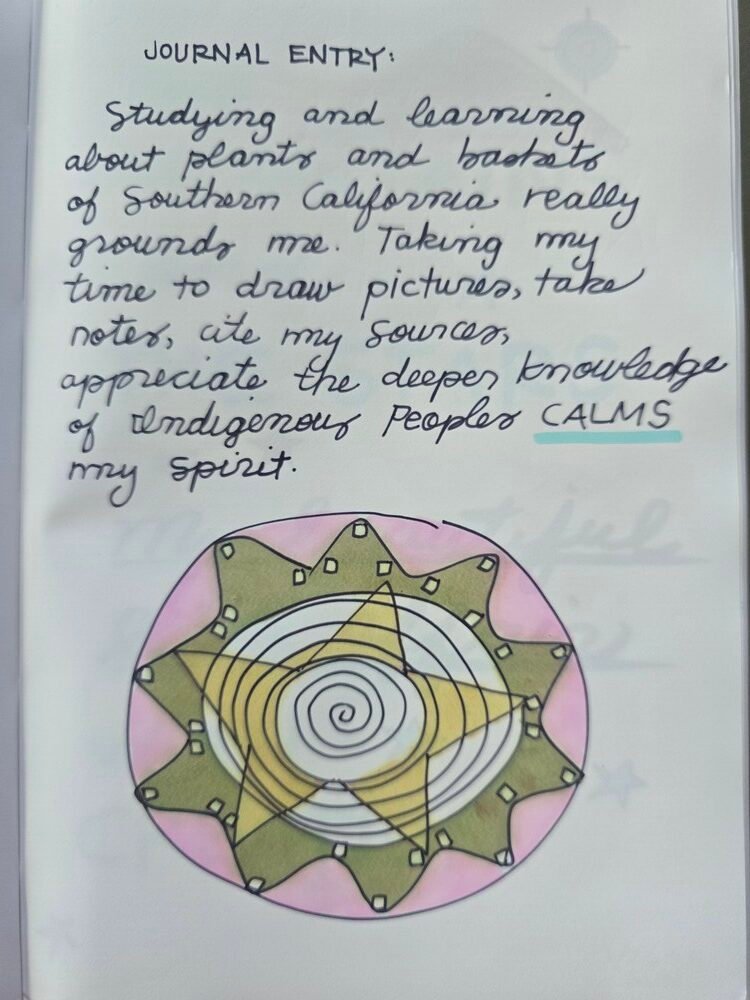 JOURNAL ENTRY:
Studying and learning
about plants and baskets
of Southern California really
grounds me. Taking my
time to draw pictures, take
notes, cite my sources,
appreciate the deeper knowledge
of Indigenous Peoples CALMS
my spirit.